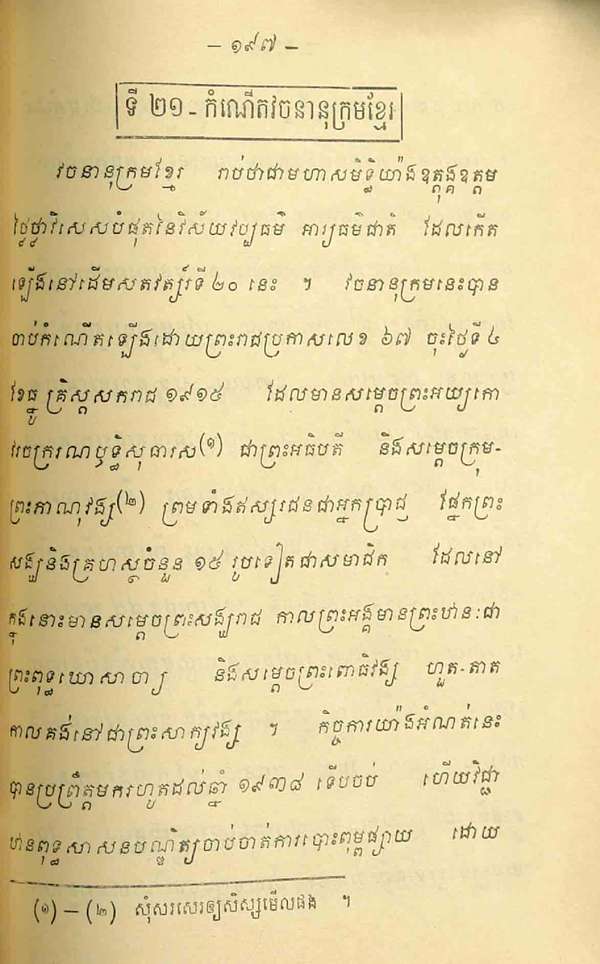 – ១៩៧ –
ទី ២១ - កំណើតវចនានុក្រមខ្មែរ
វចនានុក្រមខ្មែរ រាប់ថាជាមហាសមិទ្ធិយ៉ាងឧត្តុង្គឧត្តម
ថ្លៃថ្លាវិសេសបំផុតនៃវិស័យវប្បធម៌ អារ្យធម៌ជាតិ ដែលកើត
ឡើងនៅដើមសតវត្សរ៍ទី ២០ នេះ ។ វចនានុក្រមនេះបាន
ចាប់កំណើតឡើងដោយព្រះរាជប្រកាសលេខ ៦៧ ចុះថ្ងៃទី ៤
ខែធ្នូ គ្រិស្តសករាជ ១៩១៥ ដែលមានសម្តេចព្រះអយ្យកោ
វរចក្ររណឫទ្ធិសុធារស(១) ជាព្រះអធិបតី និងសម្តេចក្រុម-
ព្រះភាណុវង្ស(២) ព្រមទាំងឥស្សរជនជាអ្នកប្រាជ្ញ ផ្នែកព្រះ
សង្ឃនិងគ្រហស្ថចំនួន ១៥ រូបទៀតជាសមាជិក ដែលនៅ
ក្នុងនោះមានសម្តេចព្រះសង្ឃរាជ កាលព្រះអង្គមានព្រះឋានៈជា
ព្រះពុទ្ធឃោសាចារ្យ និងសម្តេចព្រះពោធិវង្ស ហួត-តាត
កាលគង់នៅជាព្រះសាក្យវង្ស ។ កិច្ចការយ៉ាងអំណត់នេះ
បានប្រព្រឹត្តមករហូតដល់ឆ្នាំ ១៩៣៨ ទើបចប់ ហើយវិជ្ជា
ឋានពុទ្ធសាសនបណ្ឌិត្យចាប់ចាត់ការបោះពុម្ពផ្សាយ ដោយ
(១) – (២) សុំសរសេរឲ្យសិស្សមើលផង ។